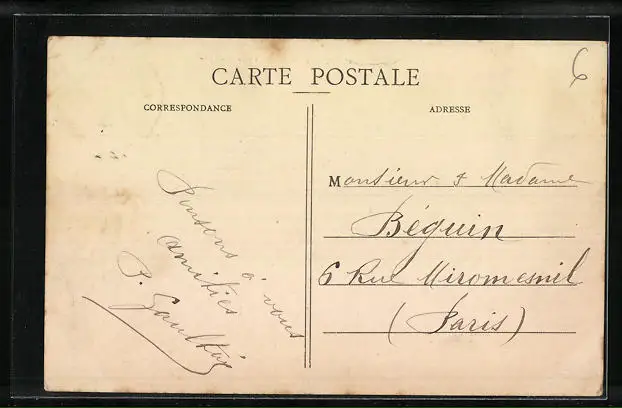 CARTE POSTALE
6
CORRESPONDANCE
ADRESSE
Pensons à vous
amitiés
P.
Monsieur & Madame
Béguin
6 Rue Miromesnil
(Paris)